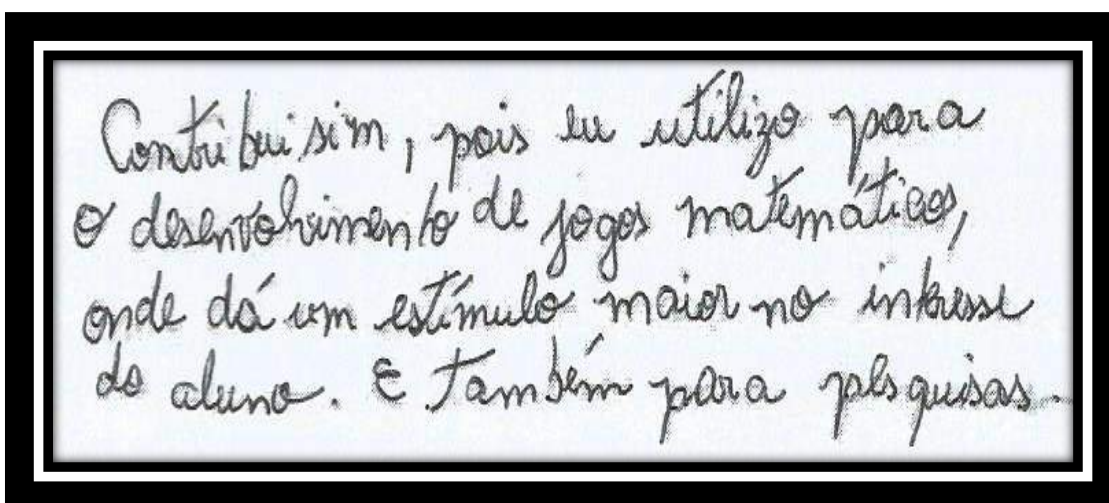 Contribui sim, pois eu utilizo para
o desenvolvimento de jogos matemáticos,
onde dá um estímulo maior no interesse
do aluno. E também para pesquisas.